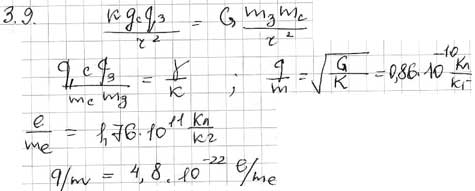 3.9. k q_c q_з / r² = G m_з m_c / r²
q_c q_з / m_c m_з = γ / k ; q/m = √(G/K) = 0,86·10⁻¹⁰ Кл/кг
e/m_e = 1,76·10¹¹ Кл/кг
q/m = 4,8·10⁻²² e/m_e